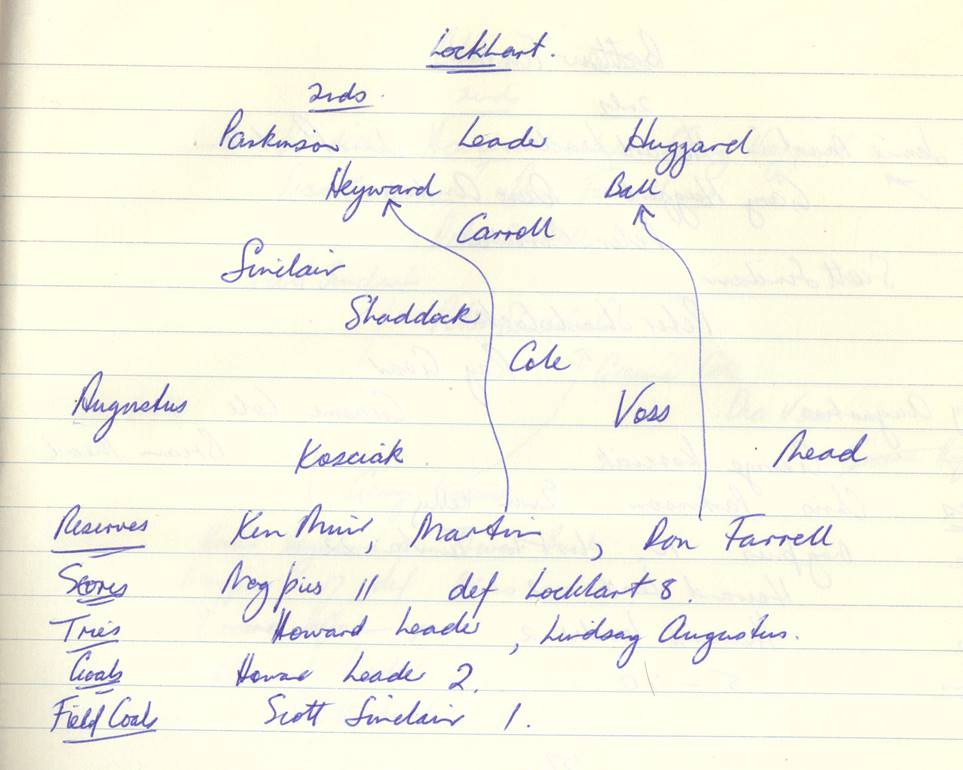 Lockhart.
2nds.
Parkinson Leader Huggard
Heyward Ball
Carroll
Sinclair
Shaddock
Cole
Augustus Voss
Kosciak Mead
Reserves Ken Muir, Martin, Ron Farrell
Scores Magpies 11 def Lockhart 8.
Tries Howard Leader, Lindsay Augustus.
Goals Howard Leader 2.
Field Goals Scott Sinclair 1.